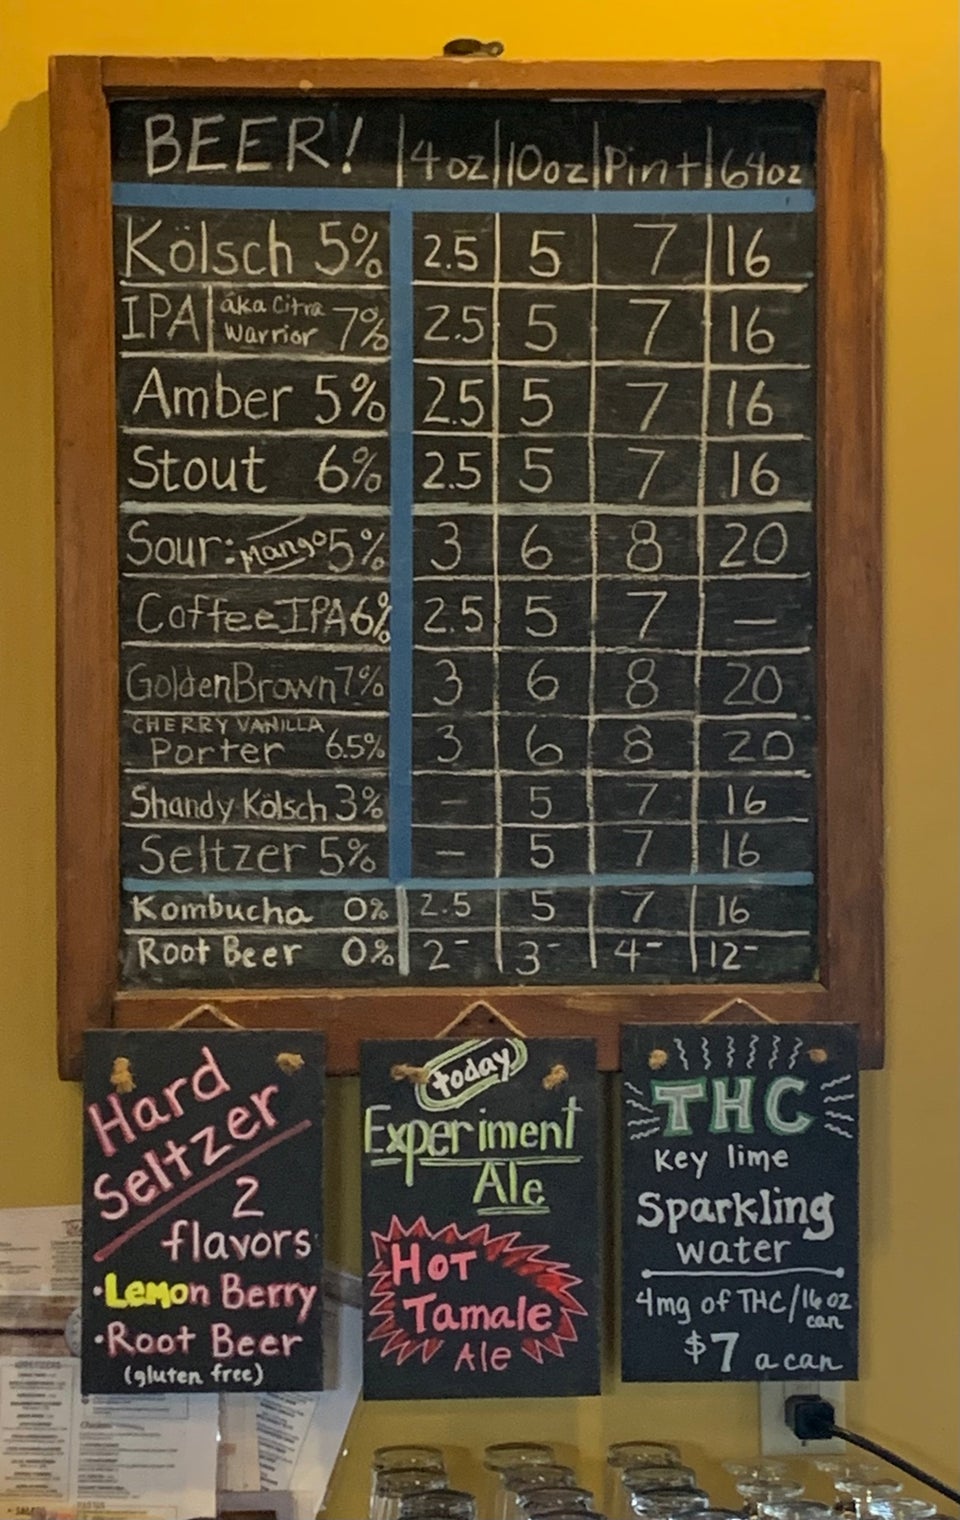 BEER! 4oz 10oz Pint 64oz
Kölsch 5% 2.5 5 7 16
IPA aka Citra
Warrior 7% 2.5 5 7 16
Amber 5% 2.5 5 7 16
Stout 6% 2.5 5 7 16
Sour: Mango 5% 3 6 8 20
Coffee IPA 6% 2.5 5 7 —
Golden Brown 7% 3 6 8 20
CHERRY VANILLA
Porter 6.5% 3 6 8 20
Shandy Kölsch 3% - 5 7 16
Seltzer 5% - 5 7 16
Kombucha 0% 2.5 5 7 16
Root Beer 0% 2- 3- 4- 12-
Hard
Seltzer
2
flavors
•Lemon Berry
•Root Beer
(gluten free)
today
Experiment
Ale
HOT
Tamale
Ale
THC
Key lime
Sparkling
water
4mg of THC/16oz
can
$7 a can